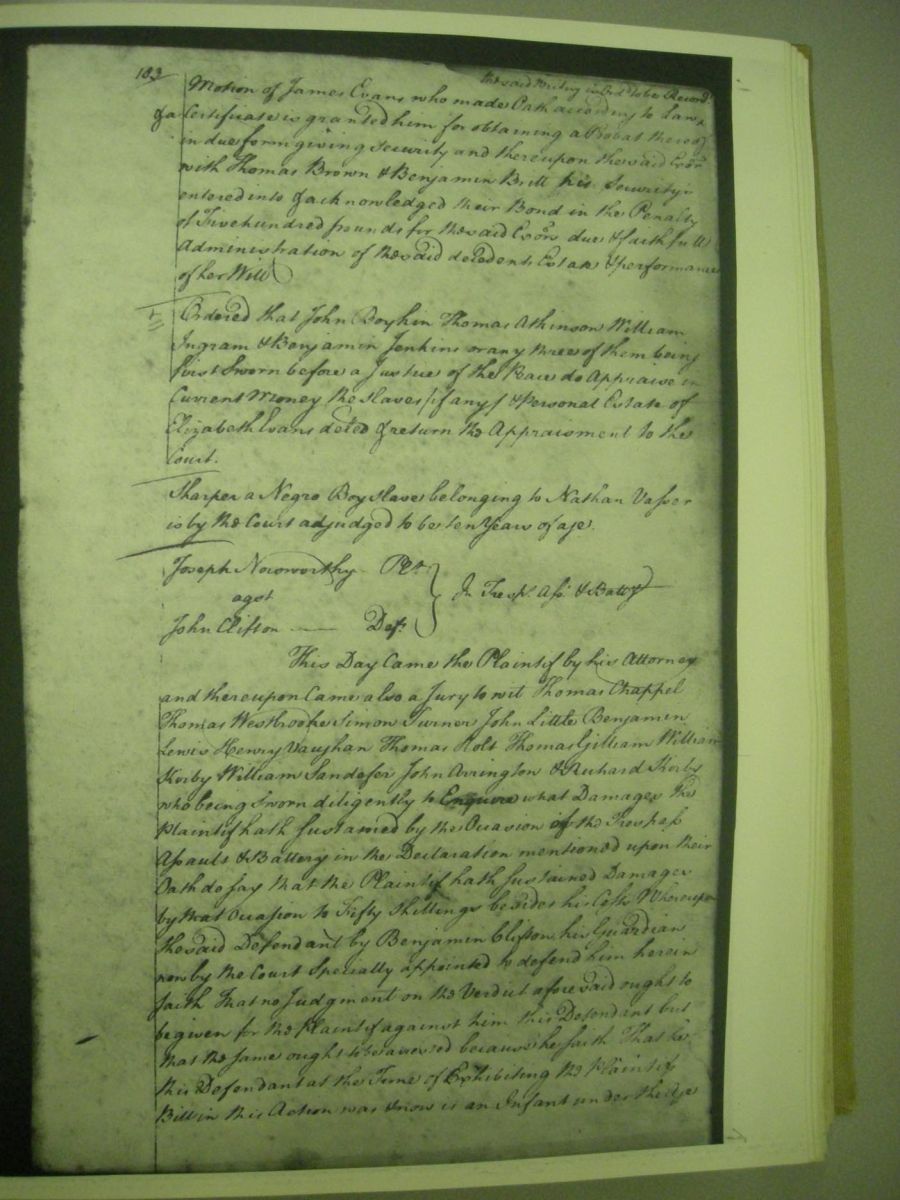 183
the said Writing is Ord. to be Record.
Motion of James Evans who made Oath according to Law,
& a Certificate is granted him for obtaining a Probat thereof
in due form giving security and thereupon the said Exor
with Thomas Brown & Benjamin Britt his Securitys
entered into & acknowledged their Bond in the Penalty
of Five hundred pounds for the said Exors due & faithfull
Administration of the said decedents Estate & performance
of her Will
Ordered that John Boykin Thomas Atkinson William
Ingram & Benjamin Jenkins or any three of them being
first Sworn before a Justice of the Peace do Appraise in
Current Money the slaves /if any/ & Personal Estate of
Elizabeth Evans deced & return the Appraisment to the
Court.
Sharper a Negro Boy slave belonging to Nathan Vasser
is by the Court adjudged to be ten Years of age.
Joseph Norsworthy Plt.
agst
John Clifton Deft.
In Tresp. Asst. & Battry
This Day Came the Plaintif by his Attorney
and thereupon Came also a Jury to wit Thomas Chappel
Thomas Westbrooke Simon Turner John Little Benjamin
Lewis Henry Vaughan Thomas Holt Thomas Gilliam William
Kirby William Sandefer John Arrington & Richard Kirby
who being Sworn diligently to Enquire what Damages the
Plaintif hath Sustained by the Occasion of the Trespass
Assault & Battery in the Declaration mentioned upon their
Oath do say that the Plaintif hath Sustained Damages
by that Occasion to Fifty Shillings besides his Costs Whereupon
the said Defendant by Benjamin Clifton his Guardian
now by the Court Specially appointed to defend him herein
saith That no Judgment on the Verdict aforesaid ought to
be given for the Plaintif against him this Defendant but
that the same ought to be arrested because he saith That he
this Defendant at the Time of Exhibiting the Plaintifs
Bill in this Action was & now is an Infant under the Age